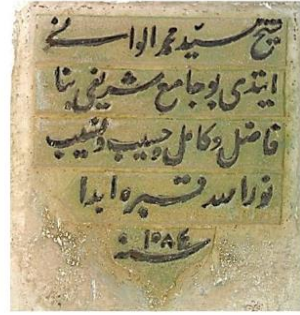 شیخ سید محمد الوانی
ایتدی بو جامع شریفی بنا
فاضل و کامل حسیب و نسیب
نور الله قبره ابدا
سنه ١٠٨٤